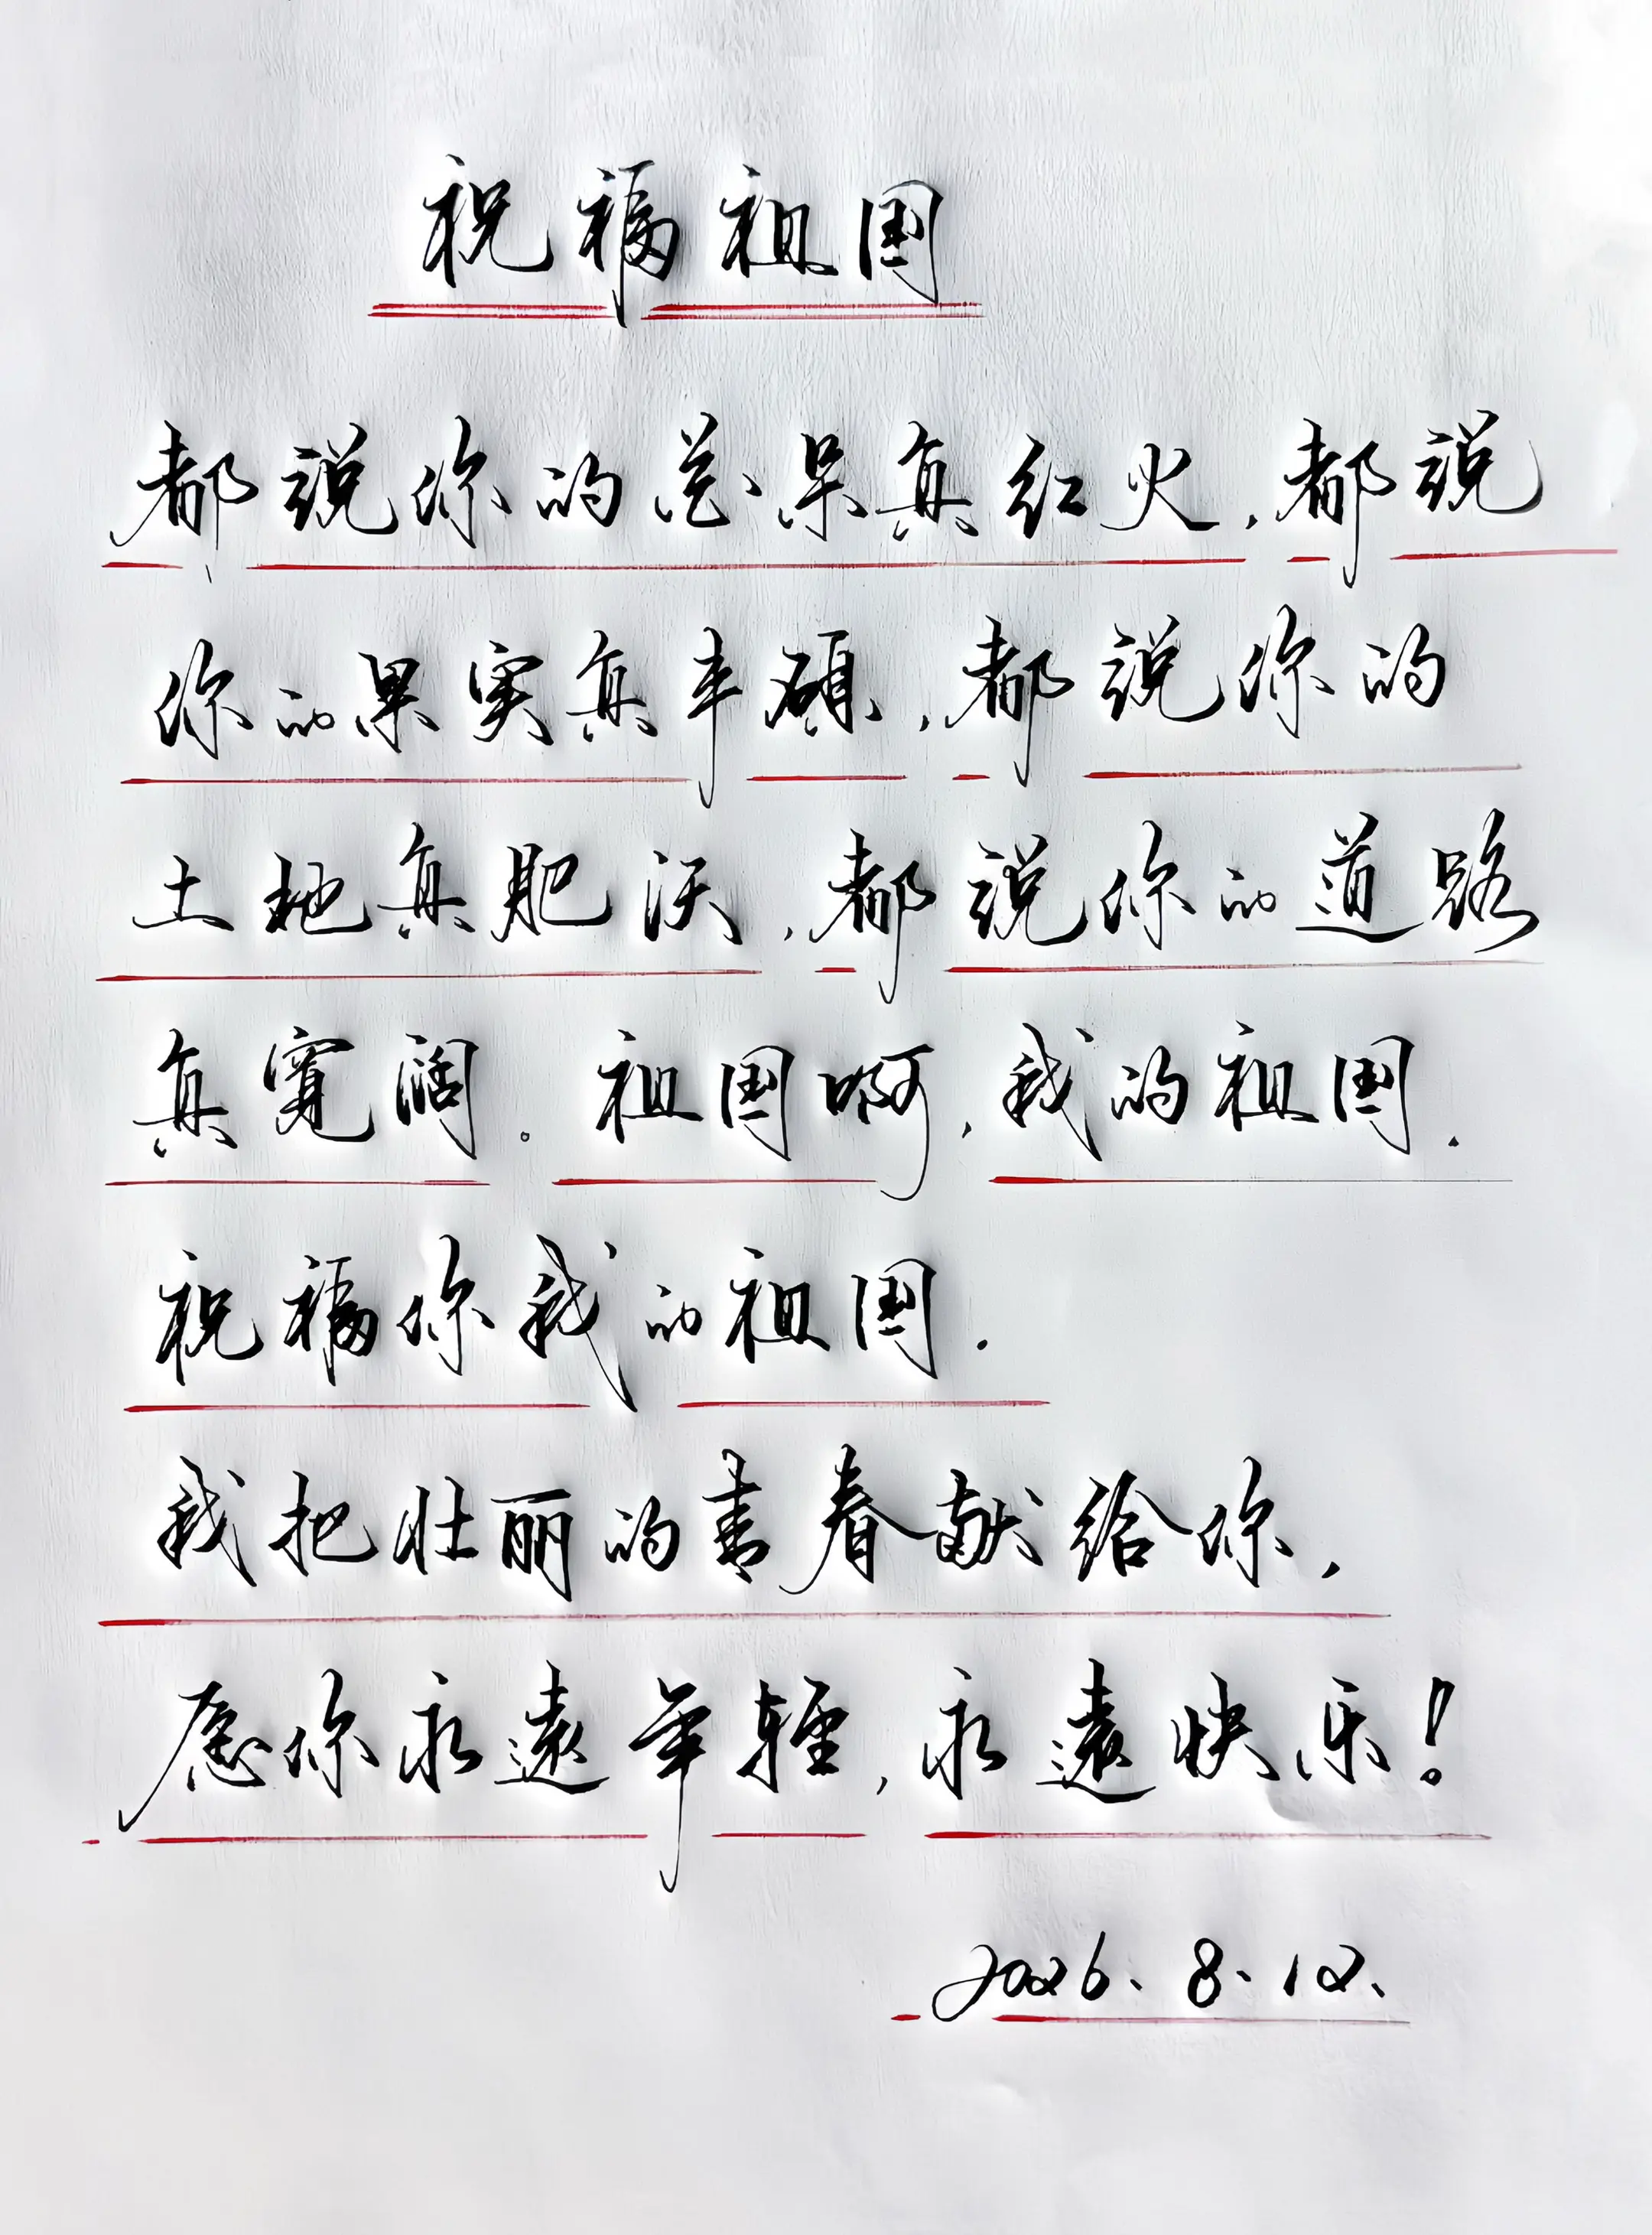 祝福祖国
都说你的花朵真红火,都说
你的果实真丰硕,都说你的
土地真肥沃,都说你的道路
真宽阔。祖国啊,我的祖国.
祝福你我的祖国.
我把壮丽的青春献给你,
愿你永远年轻,永远快乐!
2026.8.12.